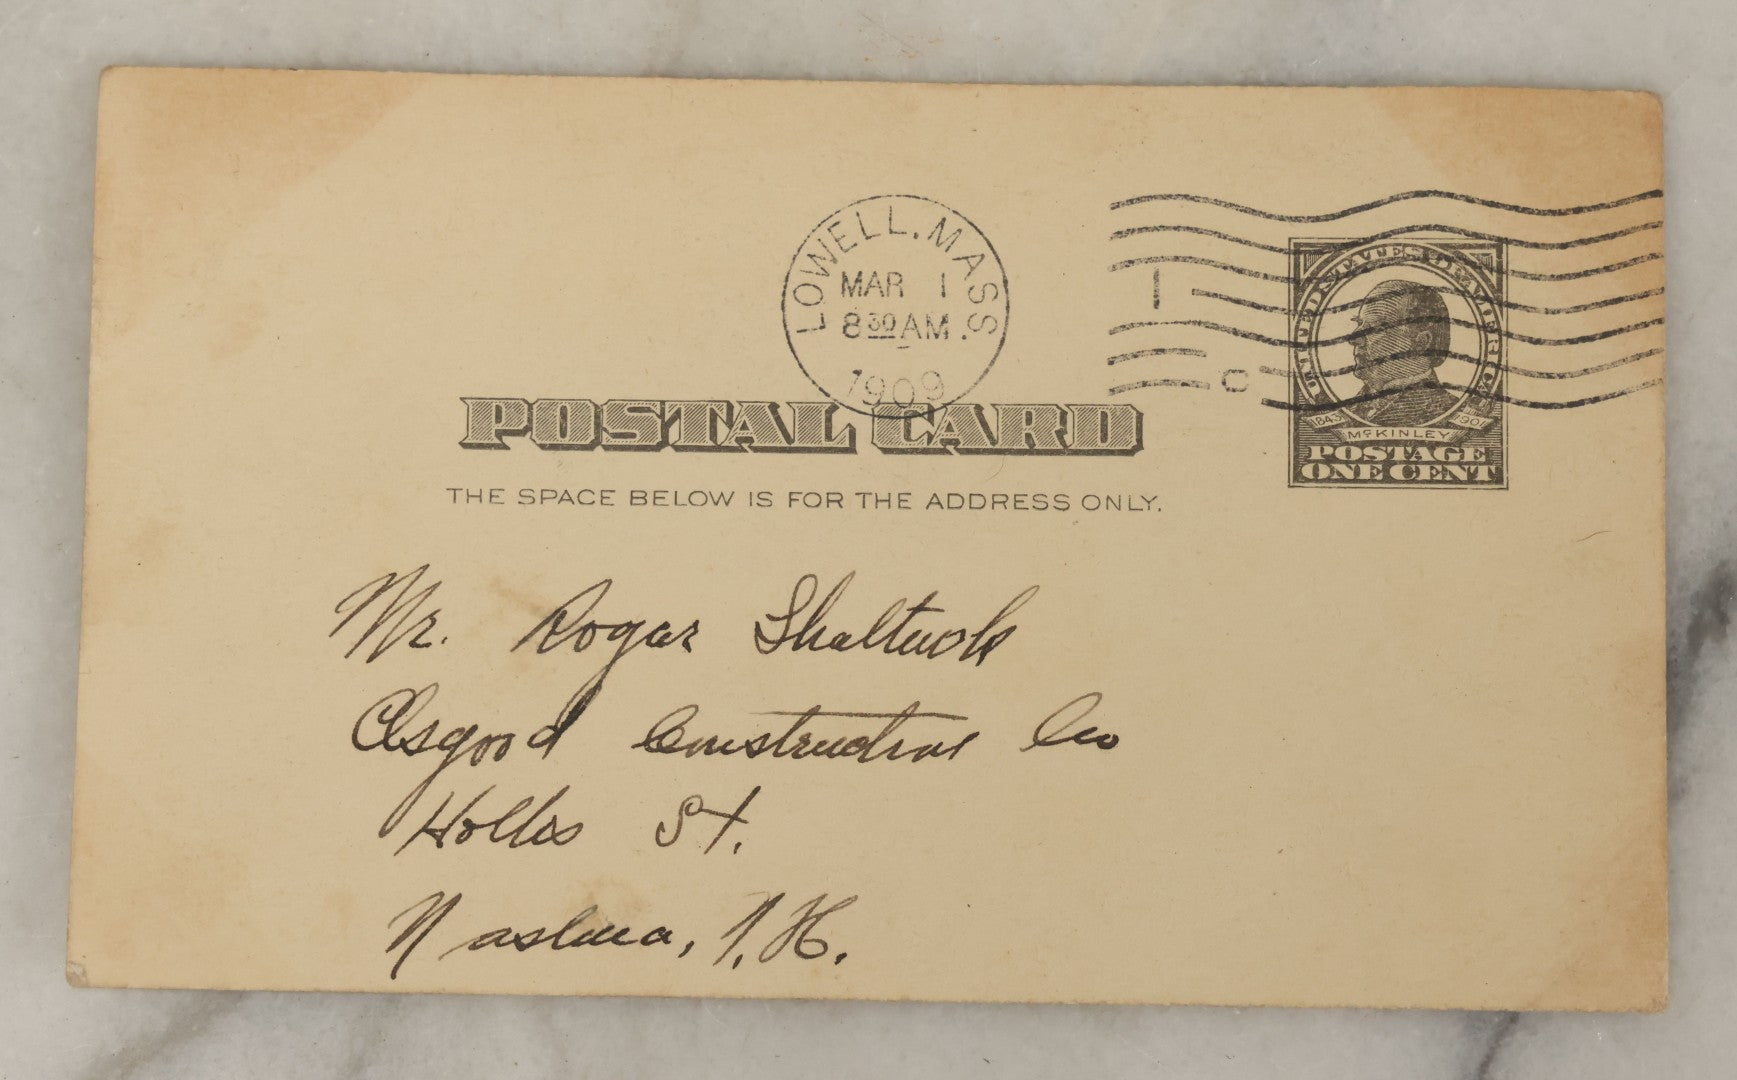 LOWELL, MASS.
MAR 1
8 30 AM.
1909
1
C
UNITED STATES OF AMERICA
1843 McKINLEY 1901
POSTAGE
ONE CENT
POSTAL CARD
THE SPACE BELOW IS FOR THE ADDRESS ONLY.
Mr. Rogar Shattuck
Osgood Construction Co
Hollis St.
Nashua, N.H.